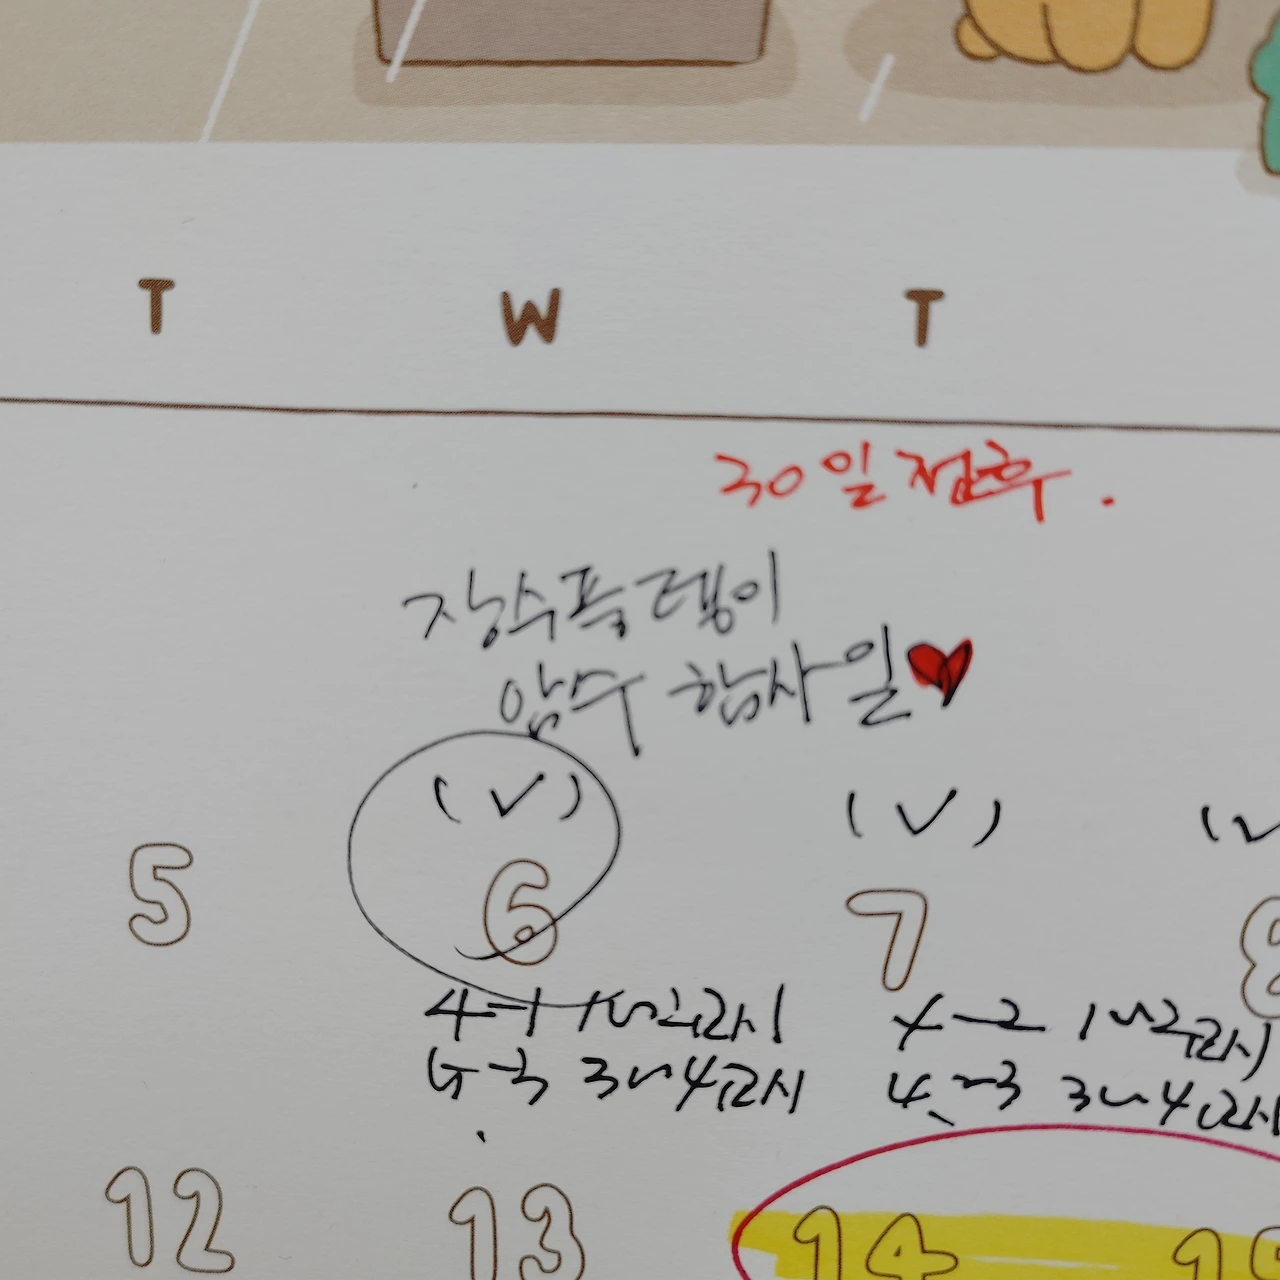 T W T
30일 전후.
장수풍뎅이
암수 합사일
(✓) (✓)
5 6 7 8
4-1 1~2교시
4-3 3~4교시
4-2 1~2교시
4-3 3~4교시
12 13 14